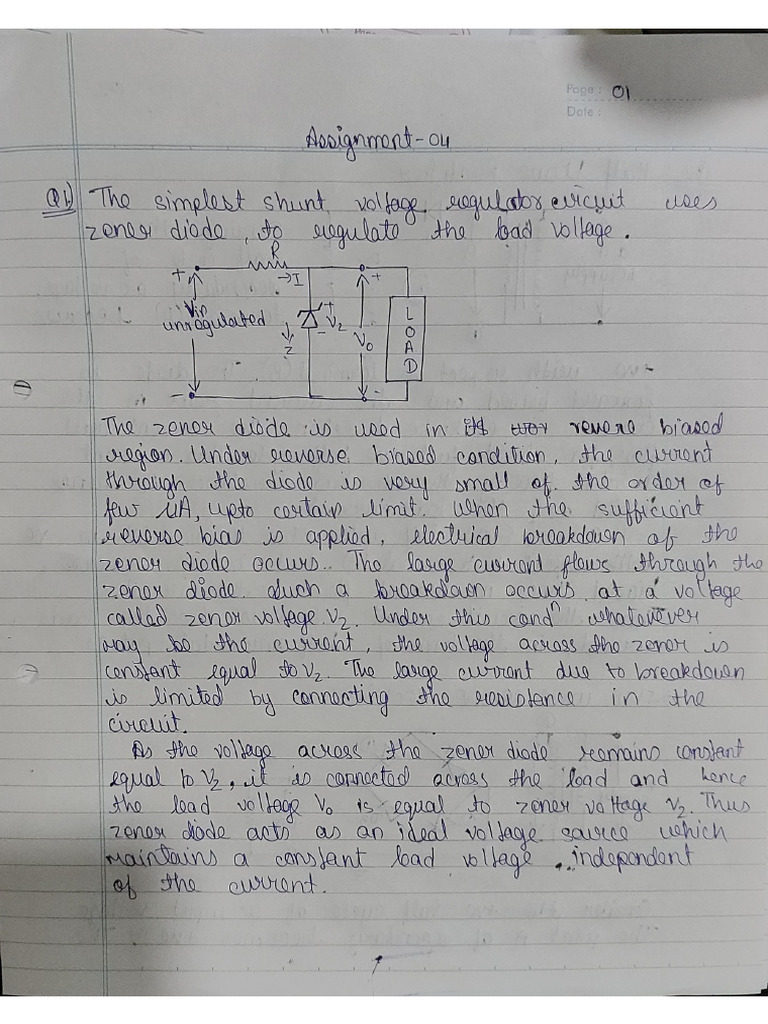 Page : 01
Date :
Assignment-04
Q1) The simplest shunt voltage regulator circuit uses
zener diode, to regulate the load voltage.
R
+ →I +
Vin
unregulated
+
V2
-
Z
V0
LOAD
- -
The zener diode is used in revere biased
region. Under reverse biased condition, the current
through the diode is very small of the order of
few μA, upto certain limit. When the sufficient
reverse bias is applied, electrical breakdown of the
zener diode occurs. The large current flows through the
zener diode. Such a breakdown occurs at a voltage
called zener voltage V2. Under this condn whatenever
may be the current, the voltage across the zener is
constant equal to V2. The large current due to breakdown
is limited by connecting the resistence in the
circuit.
As the voltage across the zener diode remains constant
equal to V2, it is connected across the load and hence
the load voltage V0 is equal to zener voltage V2. Thus
zener diode acts as an ideal voltage source which
maintains a constant load voltage, independent
of the current.